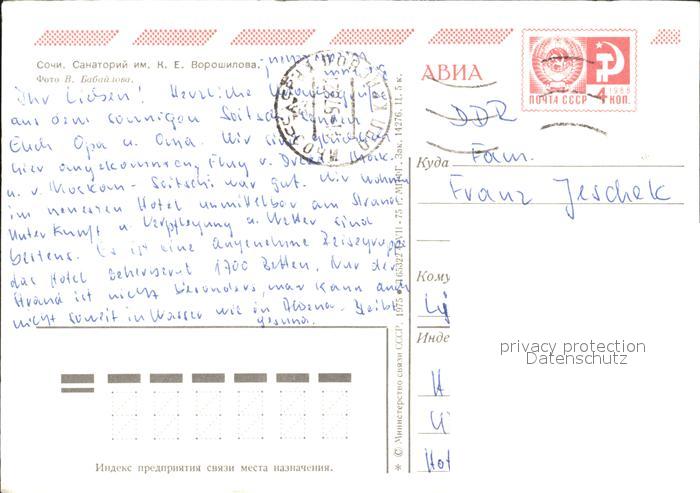 Сочи. Санаторий им. К. Е. Ворошилова.
Фото В. Бабайлова.
Ihr Lieben! Herzliche
aus dem sonnigen Sotschi senden
Euch Opa u. Oma. Wir sind glücklich
hier angekommen, Flug v.
u. v. Moskau - Sotschi war gut. Wir wohnen
im neuesten Hotel unmittelbar am Strand
Unterkunft u. Verpflegung u. Wetter sind
bestens. Es ist eine angenehme Reisegruppe
das Hotel beherbergt 1700 Betten. Nur der
Strand ist nicht besonders, man kann auch
nicht soweit in Wasser wie in Albena. Bleibt
gesund.
АВИА
ПОЧТА СССР 4 КОП.
1966
DDR
Куда
Fam.
Franz Jeschek
Кому
Инде
Hot
© Министерство связи СССР, 1975
Индекс предприятия связи места назначения.
privacy protection
Datenschutz